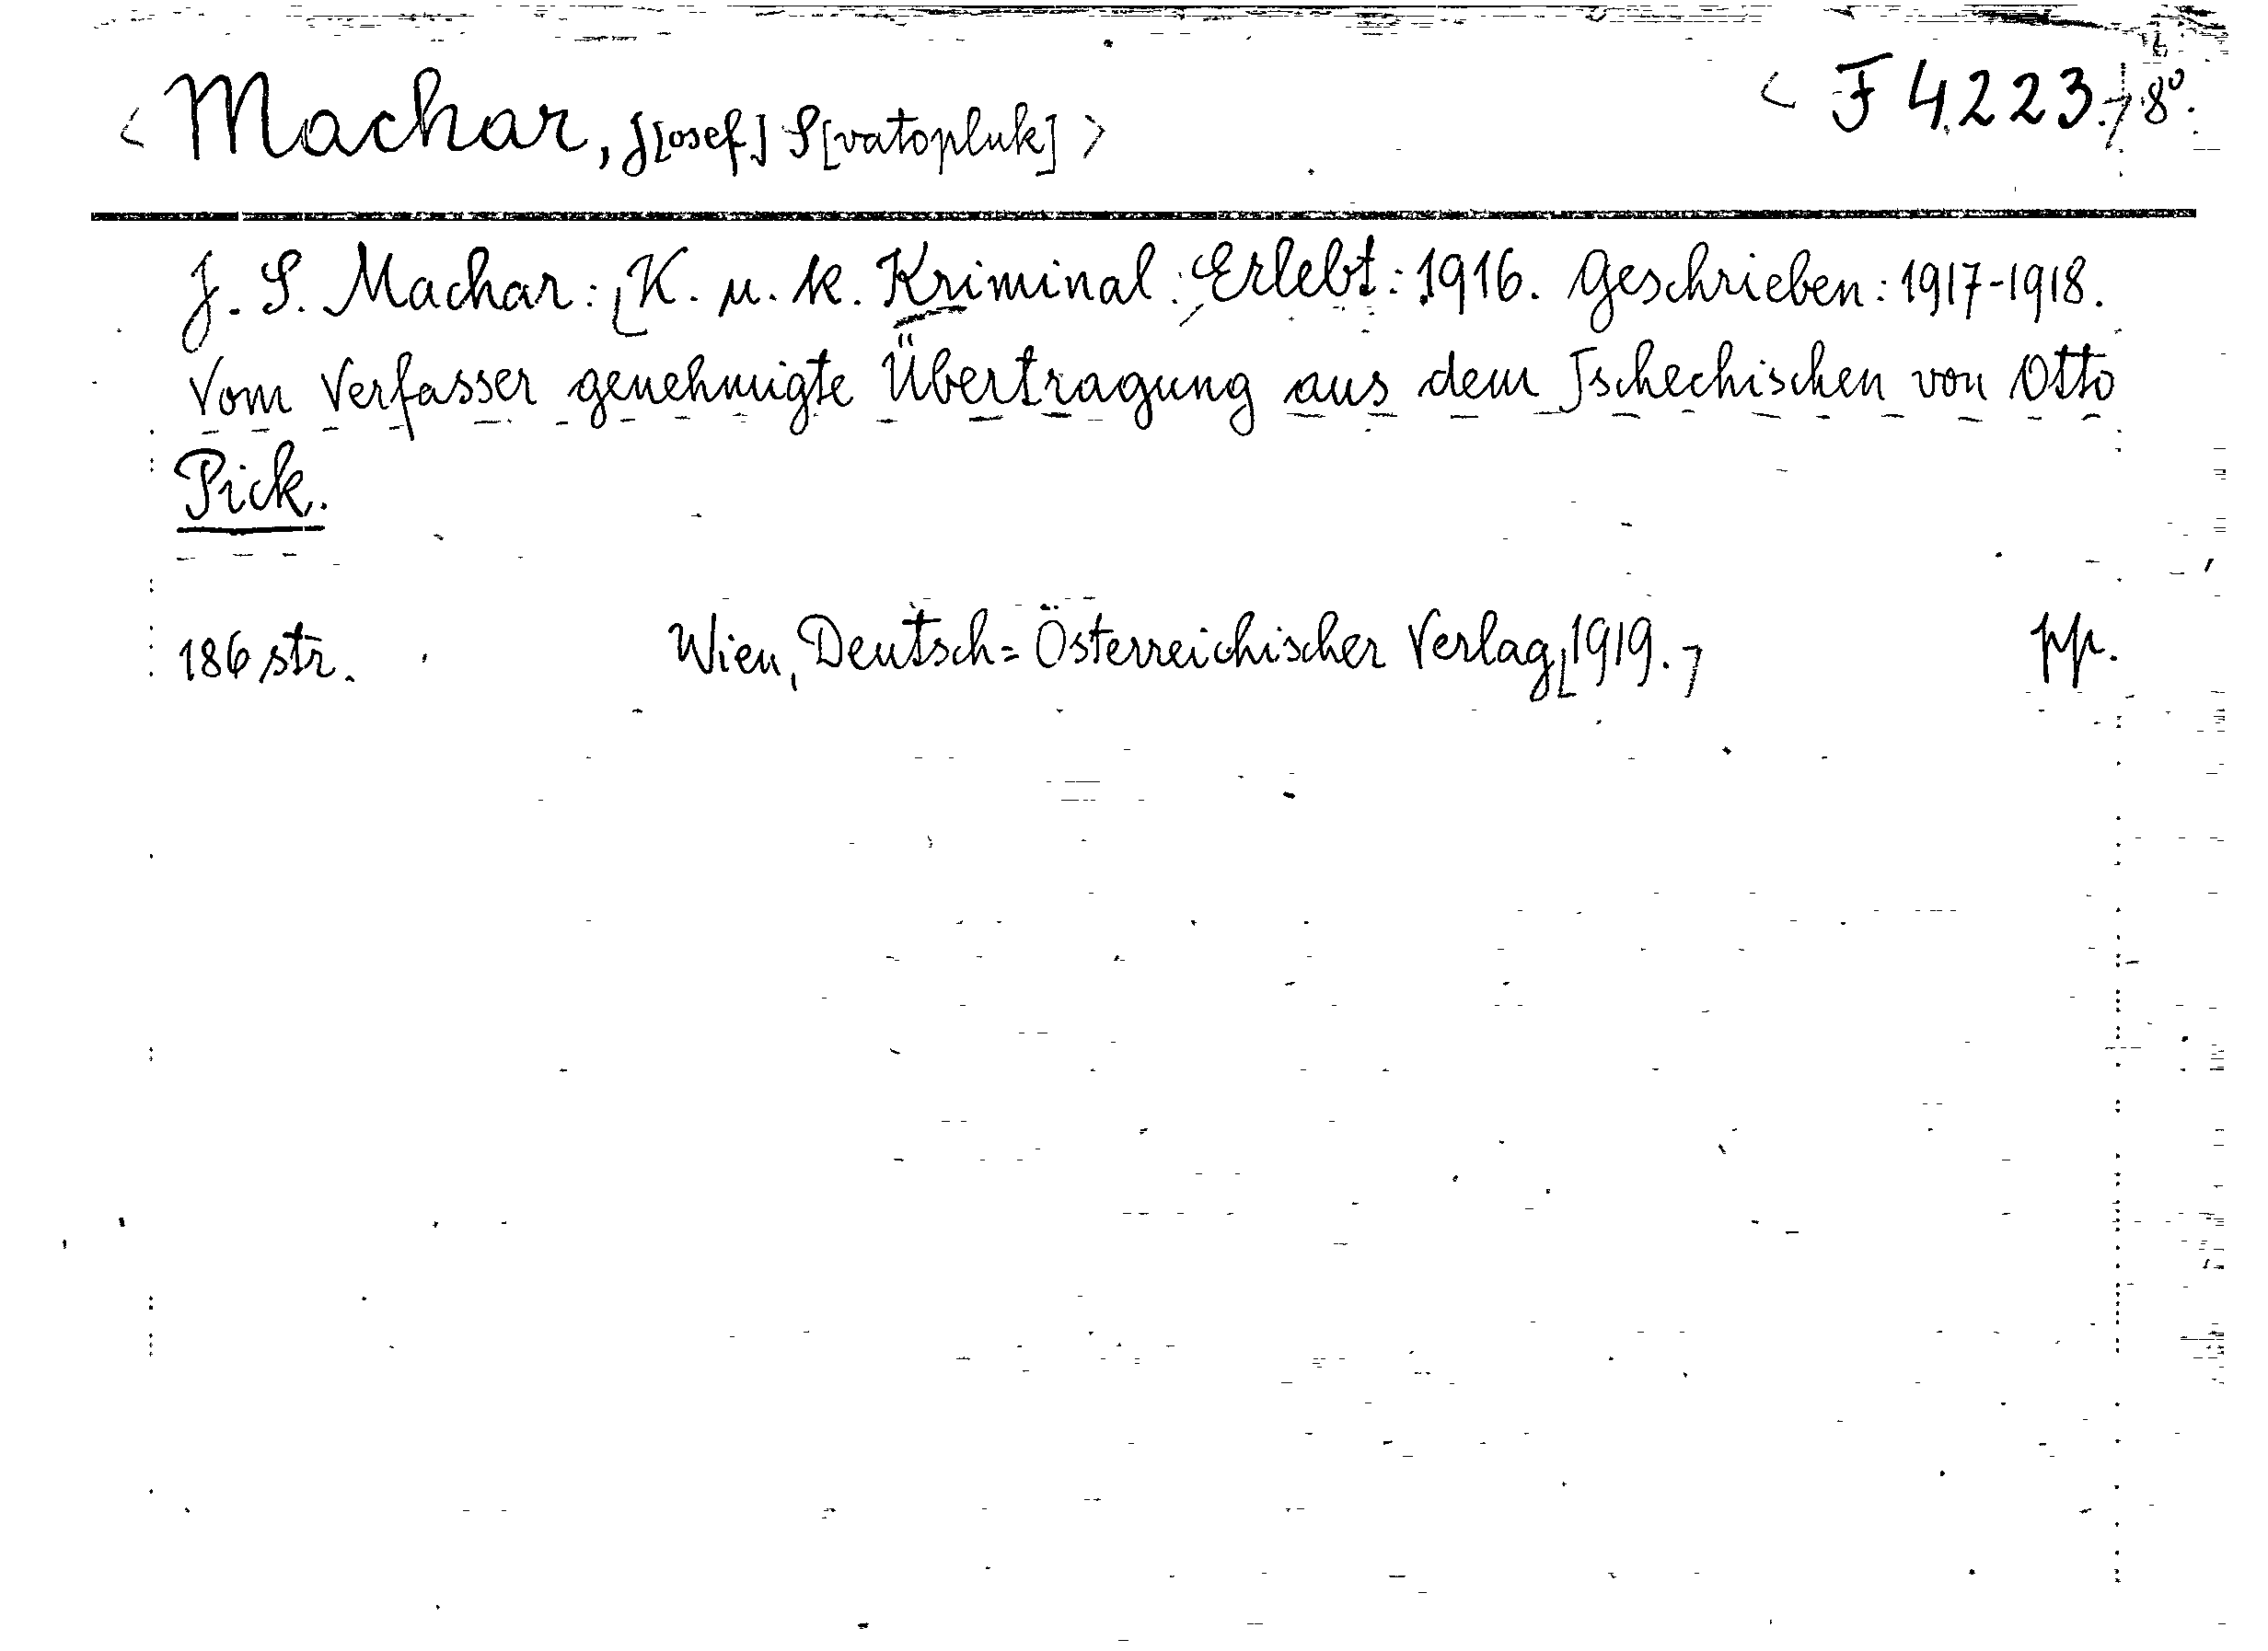 < Machar, J[osef] S[vatopluk] >
< F 4.223.7 8°.
J. S. Machar: [K. u. k. Kriminal: Erlebt: 1916. Geschrieben: 1917-1918.
Vom Verfasser genehmigte Übertragung aus dem Tschechischen von Otto
Pick.
186 str. Wien, Deutsch=Österreichischer Verlag [1919.] pp.